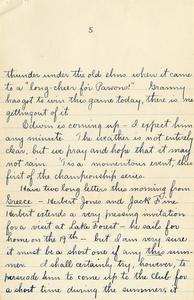 5
thunder under the old elms when it came
to a "long-cheer for Parsons!" Granny
has got to win this game today, there is no
getting out of it.
Edwin is coming up – I expect him
any minute. The weather is not entirely
clear, but we pray and hope that it may
not rain. 'Tis a momentous event, this
first of the championship series.
Have two long letters this morning from
Greece – Herbert Jones and Jack Fine
Herbert extends a very pressing invitation
for a visit at Lake Forest – he sails for
home on the 19th – but I am very sure
it must be a short one if any this
summer. I shall certainly try, however, to
persuade him to come up to the club for
a short time during the summer, if